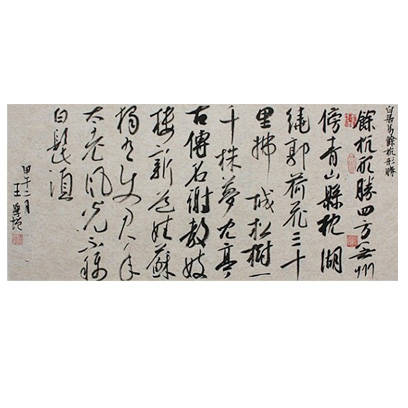 白居易餘杭形勝
餘杭形勝四方無州
傍青山縣枕湖
繞郭荷花三十
里拂城松樹一
千株夢兒亭
古傳名謝教妓
樓新道姓蘇
獨有使君年
太老風光不稱
白髭鬚
月
王